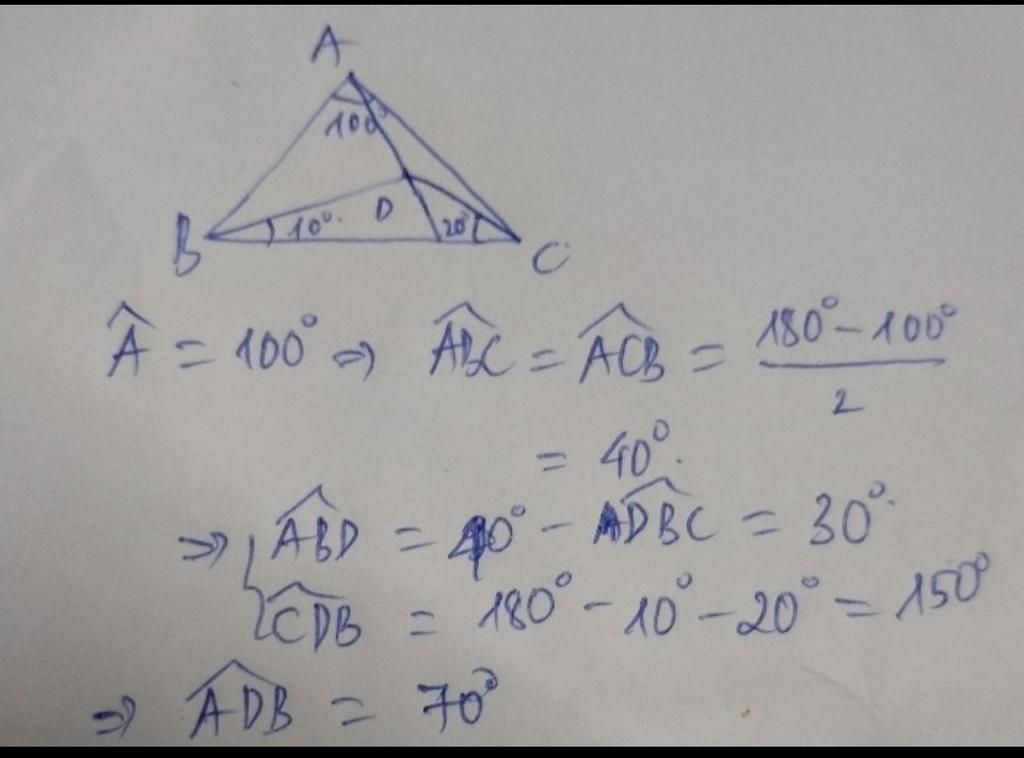 A
100°
B 10° D 20° C
Â = 100° ⇒ \widehat{ABC} = \widehat{ACB} = \frac{180° - 100°}{2}
= 40°.
⇒ { \widehat{ABD} = 40° - \widehat{DBC} = 30°.
\widehat{CDB} = 180° - 10° - 20° = 150°
⇒ \widehat{ADB} = 70°